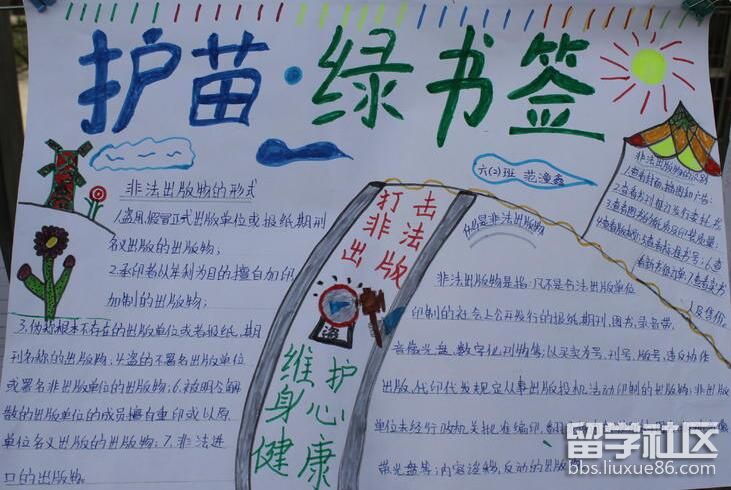 护苗·绿书签
六(2)班 范潼鑫
非法出版物的形式
1.盗用、假冒正式出版单位或报纸期刊
名义出版的出版物;
2.承印者以牟利为目的擅自加印
加制的出版物;
3.伪称根本不存在的出版单位或者报纸、期
刊名称的出版物、4.盗的不署名出版单位
或署名非出版单位的出版物;6.被明令解
散的出版单位的成员擅自重印或以原
单位名义出版的出版物;7.非法进
口的出版物。
打击
非法
出版
盗
维护
身心
健康
什么是非法出版物
非法出版物是指:凡不是合法出版单位
印制的社会上公开发行的报纸期刊、图书、录音带、
音像光盘、数字化刊物售;以买卖书号、刊号、版号、违反协作
出版、代印代发规定从事出版投机活动印制的出版物;非出版
单位未经行政机关批准编印、翻
带光盘等;内容淫秽、反动的出版
非法出版物的识别
1.查看封面、插图和广告;
2.查看
3.查看图书的纸质及印装质量;
4.查看版权;5.查看标准书号;6.查
看新书征订单;7.查看定书
人及售价。
留学社区
bbs.liuxue86.com